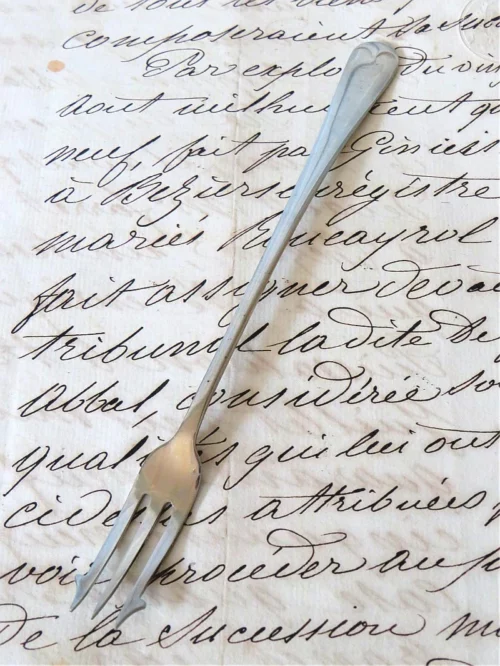 de tous les biens
composeraient la suc
Par exploi du vin
aout mil huit cent q
neuf, fait pa Giniest
à Béziers enrégistré
mariés Roucayrol
fait assigner deva
tribunal ladite De
Abbal, considérée so
qualités qui lui ont
cide attribuées
voir procéder au p
De la Succession m